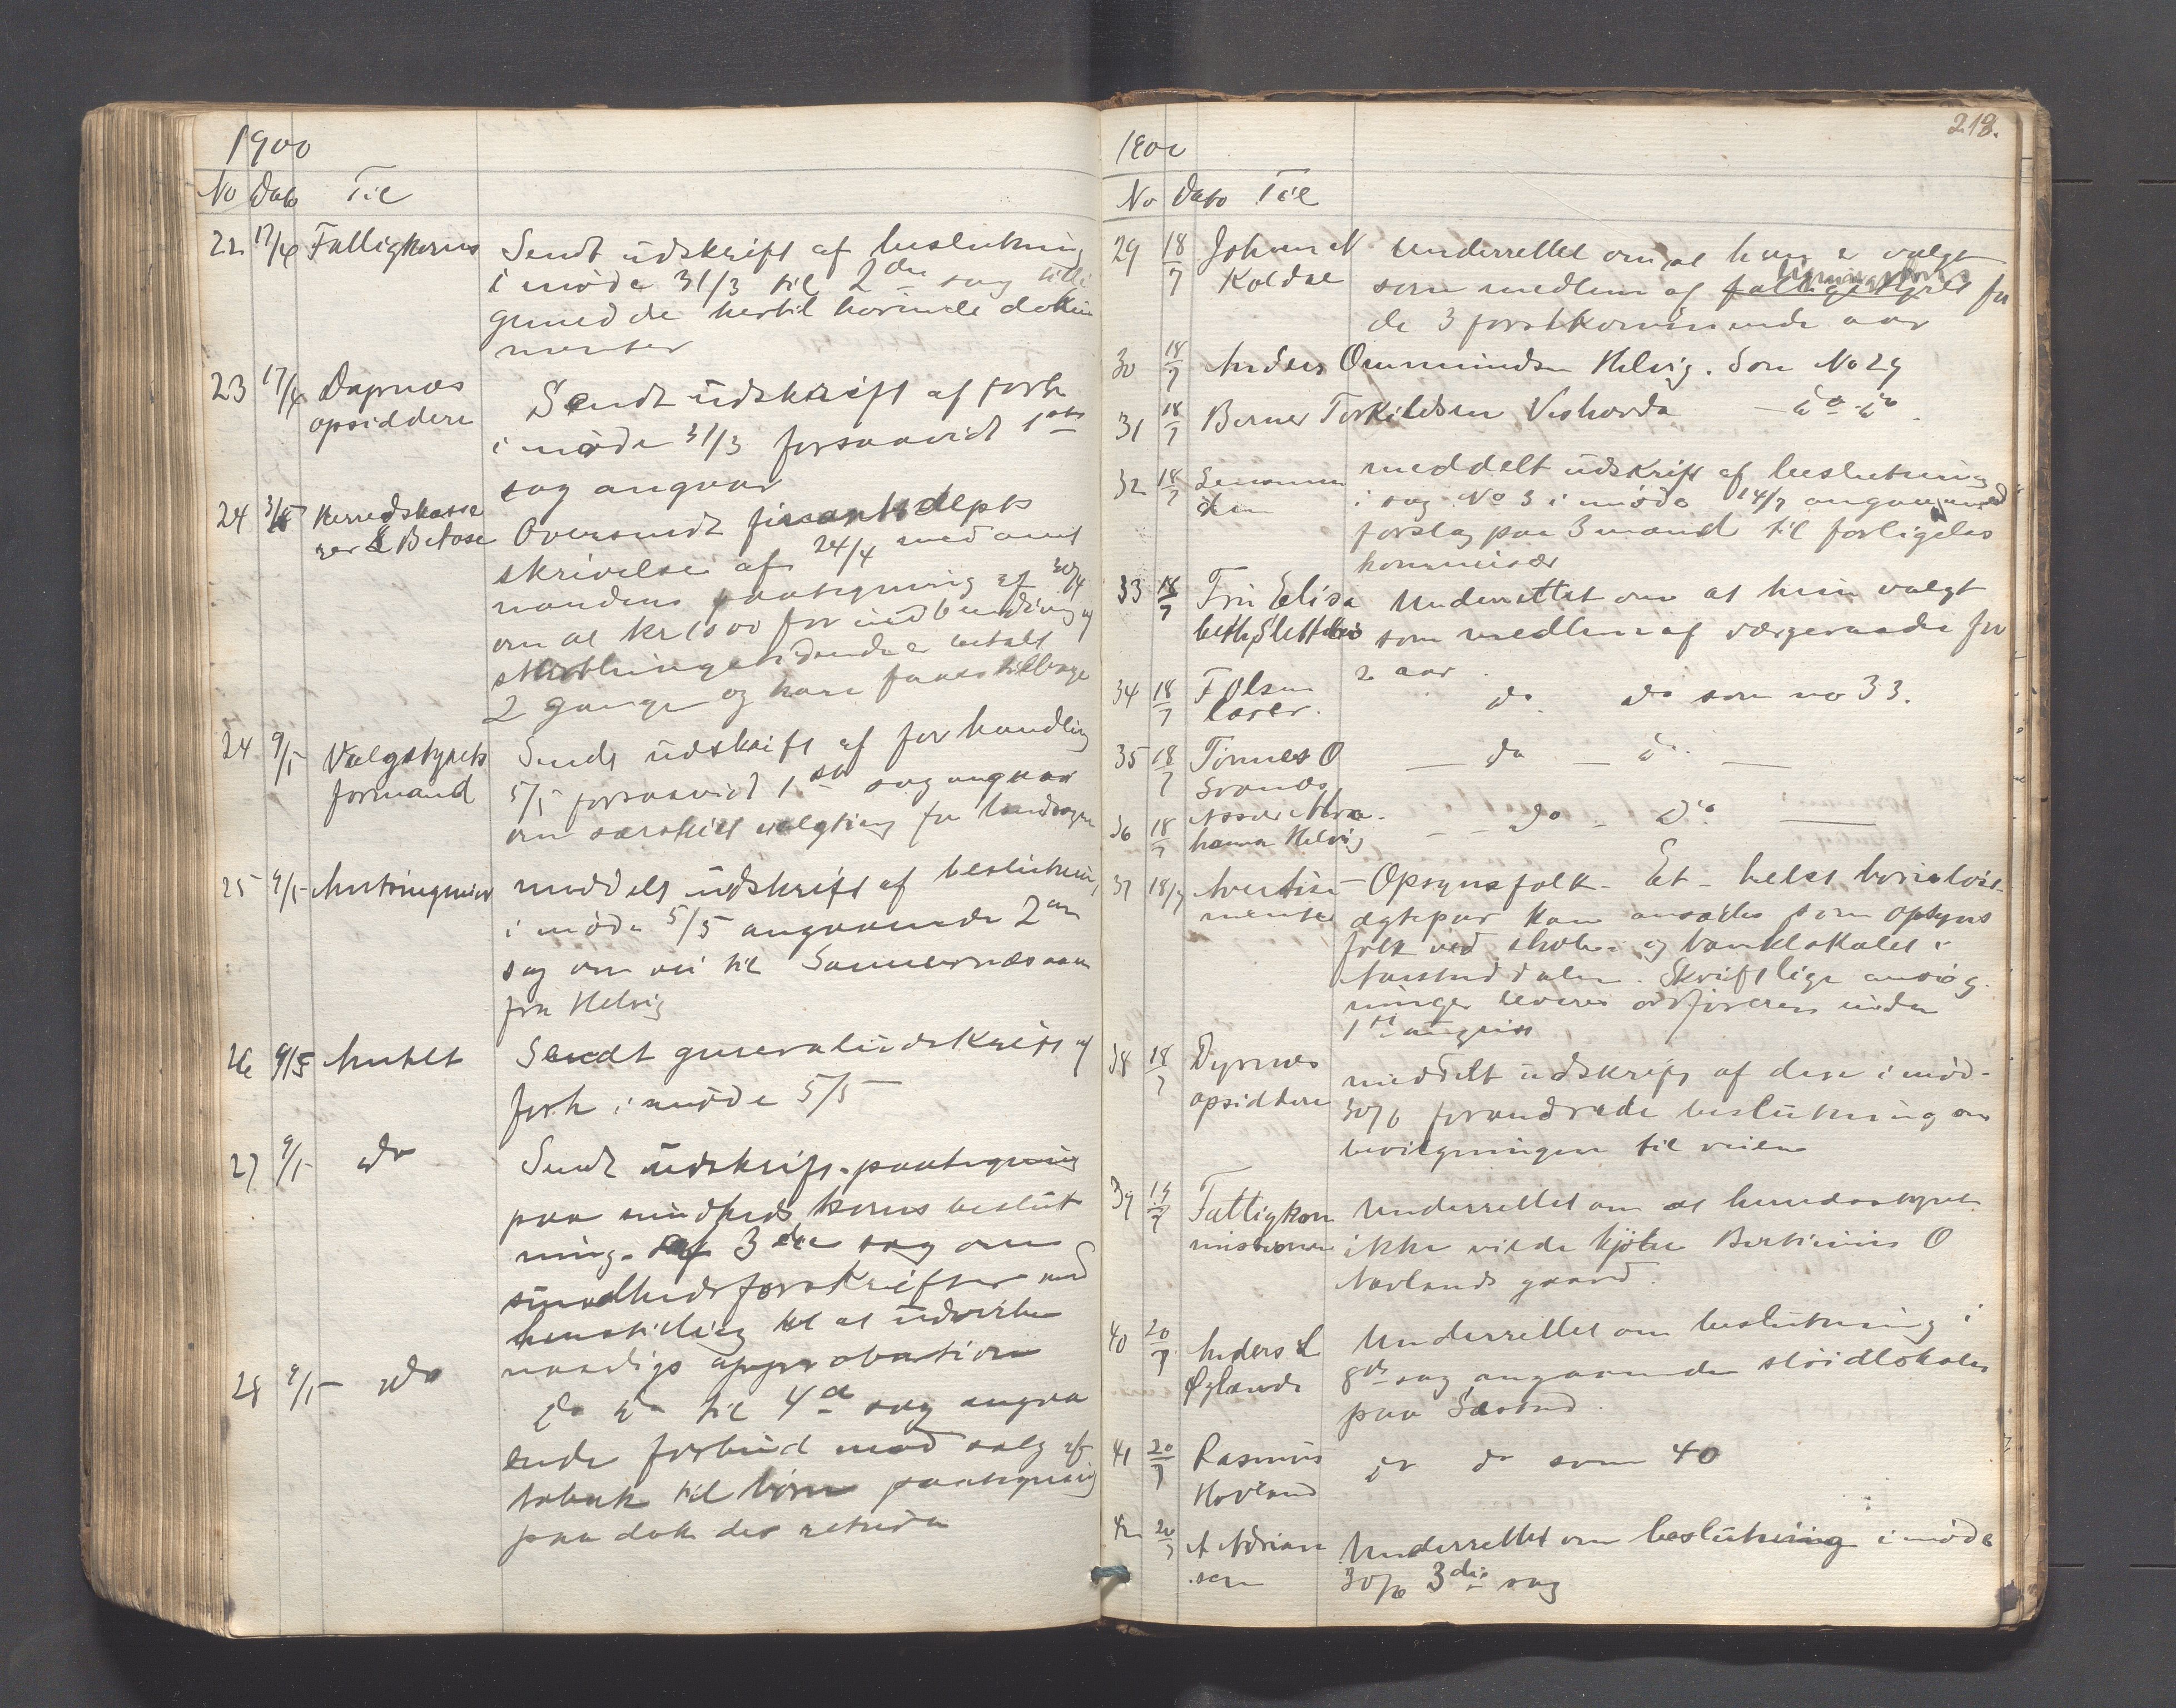 1900
No Dato Til
22 17/4 Fattigkoms Sendt udskrift af beslutning
i møde 31/3 til 2den sag tilli
gemed de hertil hørende doku
menter
23 17/4 Dyrnæs Sendt udskrift af forh
opsiddere i møde 31/3 forsaavid 1ste
sag angaar
24 3/5 Herredskasse Oversendt finantsdepts
rer Betase skrivelse af 24/4 med amt
mandens paategning af 30/4
om at kr 1000 for indbinding af
storthingstidende er betalt
2 gange og kan faaes tilbage
24 9/5 Valgstyrets Sendt udskrift af forhandling
formand 5/5 forsaavid 1ste sag angaar
om særskilt valgting for landsogn
25 9/5 Amtsingeniør meddelt udskrift af beslutning
i møde 5/5 angaaende 2den
sag om vei til
fra Helvig
26 9/5 Amtet Sendt generaludskrift af
forh i møde 5/5
27 9/5 do Sendt udskrift paategning
paa sundheds koms beslut
ning af 3die sag om
sundhedsforskrifter med
henstilling til at udvirke
naadigs approbation
28 9/5 do do do til 4de sag angaa
ende forbud mod salg af
tobak til børn paategning
paa dok des retur
218.
1900
No Dato Til
29 18/7 Johan N Underrettet om at han er valgt
Koldal som medlem af fattigstyret for
ligningskoms
de 3 førstkommende aar
30 18/7 Anders Ommundsen Helvig. Som No 29
31 18/7 Berner Torkildsen Veshovda do do
32 18/7 Lensman meddelt udskrift af beslutning
den i sag No 3 i møde 14/7 angaaend
forslag paa 3 mand til forligelses
kommisær
33 18/7 Fru Elisa Underrettet om at hun valgt
beth Slettebø som medlem af værgeraadet for
2 aar
34 18/7 F Olsen do do som no 33.
lærer.
35 18/7 Tønnes O do do
Svanes
36 18/7 Asser Abra do do
hamsen Helvig
37 18/7 Avertise Opsynsfolk. Et helst børnløst
mente ægtepar kan ansættes som opsyns
folk ved skole og banklokalet i
Skriftlige ansøg
ninger leveres ordføreren inden
1ste august
38 18/7 Dyrnes meddelt udskrift af den i møde
opsiddere 30/6 forandrede beslutning om
bevilgningen til veien
39 19/7 Fattigkom Underrettet om at herredsstyret
missionen ikke vilde kjøbe Bertinius O
Navlands gaard.
40 20/7 Anders L Underrettet om beslutning i
Øglænd 8de sag angaaende sløidlokaler
paa
41 20/7 Rasmus do do som 40
Hovland
42 20/7 A Adrian Underrettet om beslutning i møde
sen 30/6 3die sag